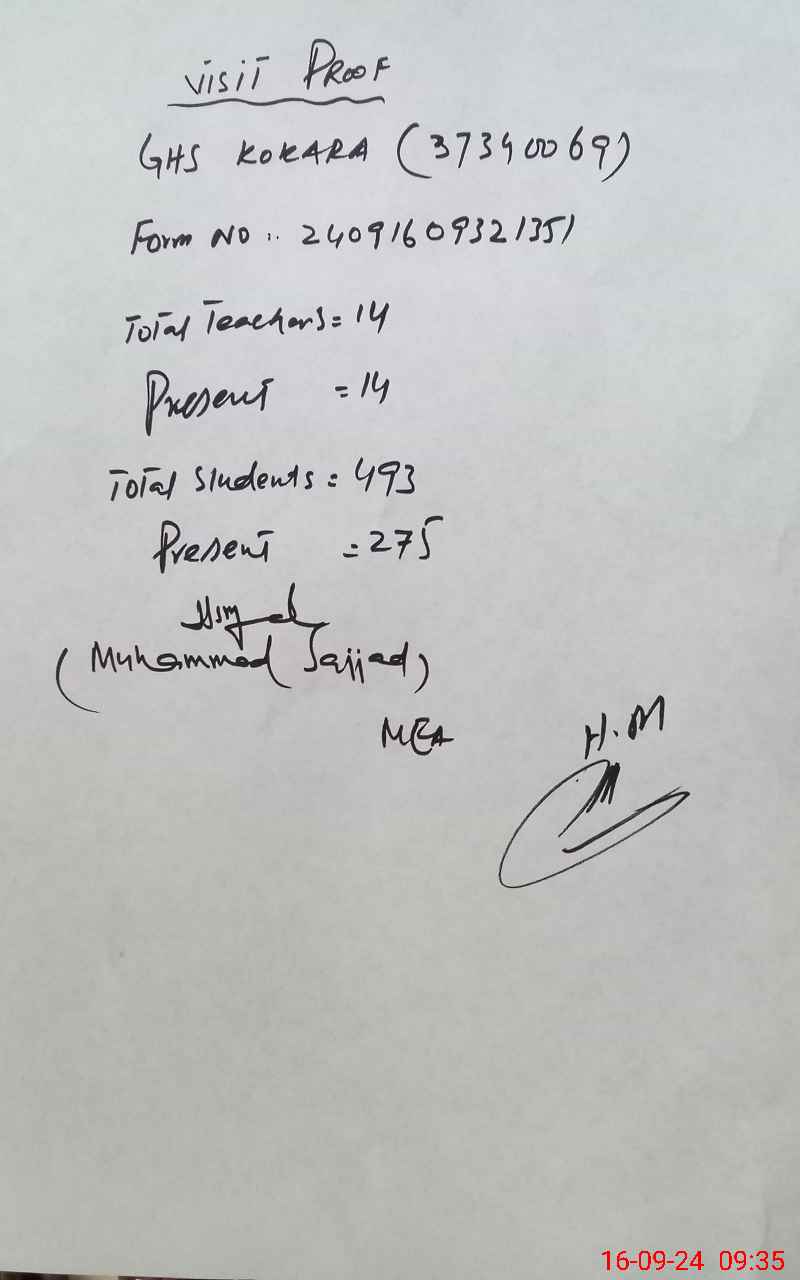 VISIT PROOF
GHS KOKARA (37340069)
Form NO :. 24091609321351
Total Teachers = 14
Present = 14
Total Students = 493
Present = 275
(Muhammad Sajjad)
MEA
H.M
16-09-24 09:35